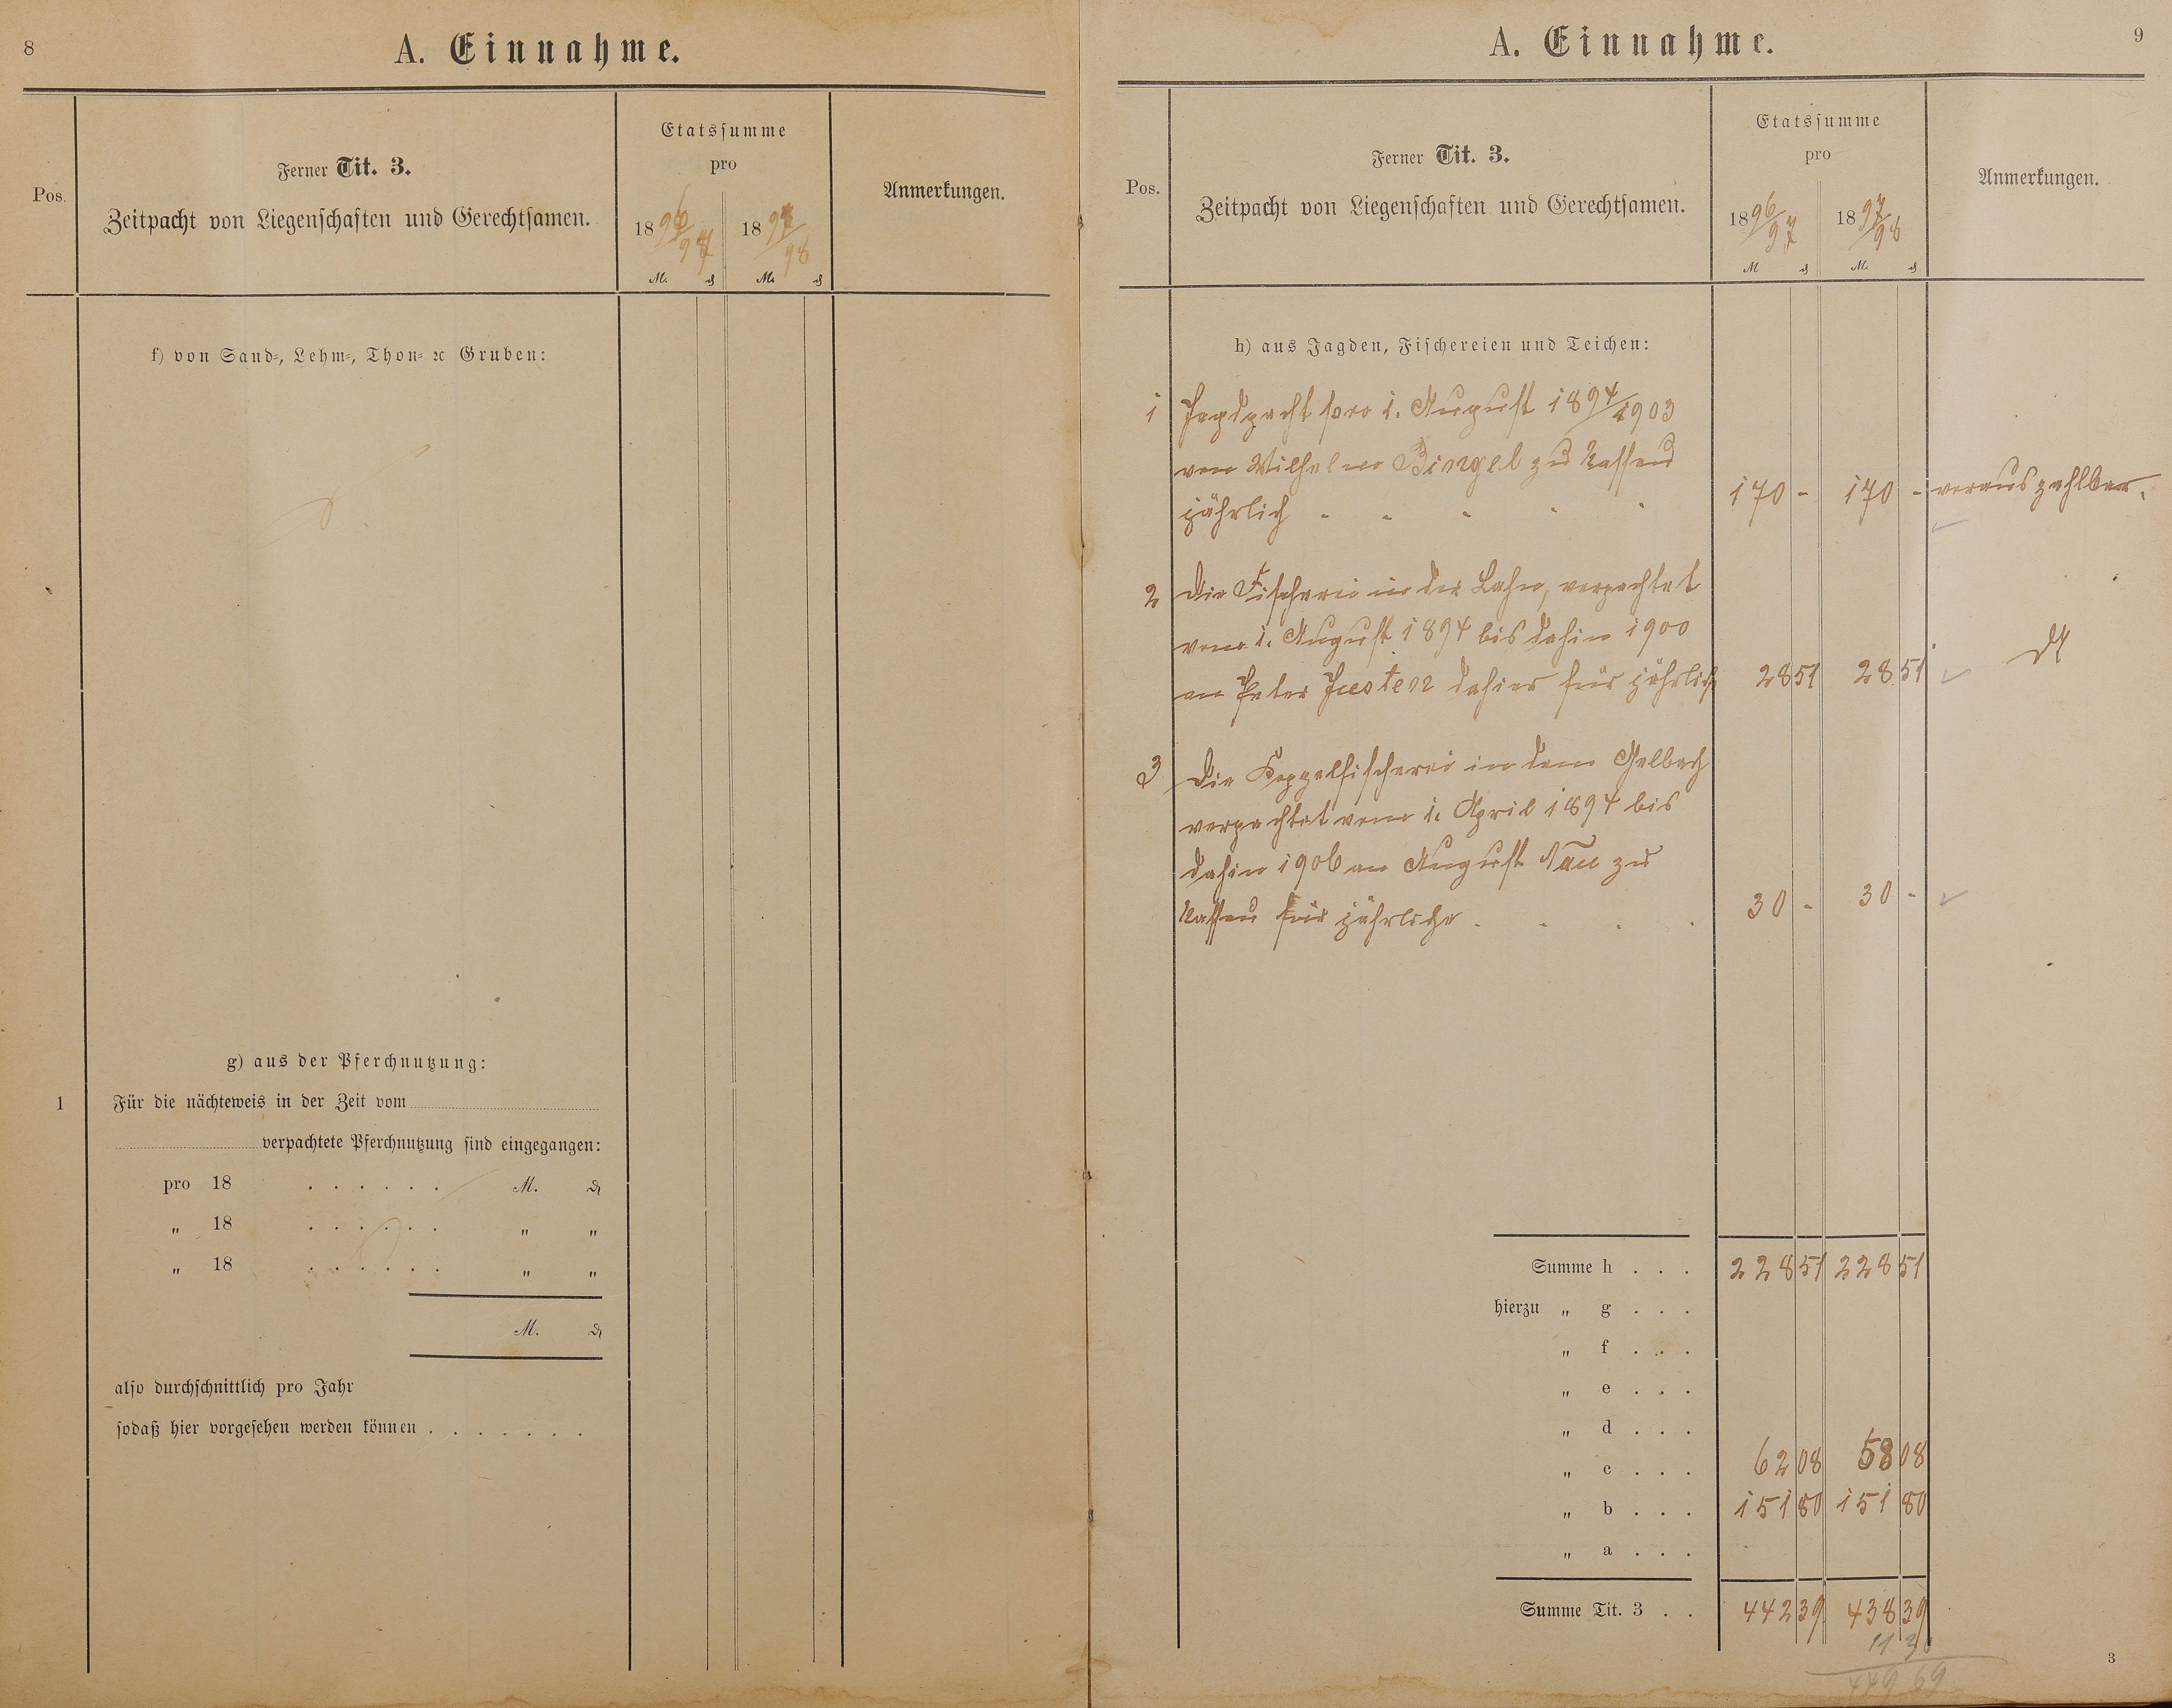 8
A. Einnahme.
Pos.
Ferner Tit. 3.
Zeitpacht von Liegenschaften und Gerechtsamen.
Etatssumme
pro
1896/97 1897/98
M. ₰ M. ₰
Anmerkungen.
f) von Sand-, Lehm-, Thon- ꝛc Gruben:
g) aus der Pferchnutzung:
1 Für die nächteweis in der Zeit vom
verpachtete Pferchnutzung sind eingegangen:
pro 18 . . . . . . M. ₰
„ 18 . . . . . . „ „
„ 18 . . . . . . „ „
M. ₰
also durchschnittlich pro Jahr
sodaß hier vorgesehen werden können . . . . . . .
9
A. Einnahme.
Pos.
Ferner Tit. 3.
Zeitpacht von Liegenschaften und Gerechtsamen.
Etatssumme
pro
1896/97 1897/98
M ₰ M. ₰
Anmerkungen.
h) aus Jagden, Fischereien und Teichen:
1 Jagdpacht pro 1. August 1894/1903
von Wilhelm Bingel zu Nassau
jährlich - - - - - 170 - 170 - vorauszahlbar.
2 Die Fischerei in der Lahn, verpachtet
vom 1. August 1894 bis dahin 1900
an Peter Justen dahier für jährlich 28 51 28 51
3 Die Koppelfischerei in dem Gelbach
verpachtet vom 1. April 1894 bis
dahin 1906 an August Nau zu
Nassau für jährliche . . . . 30 - 30 -
Summe h . . . 228 51 228 51
hierzu „ g . . .
„ f . . .
„ e . . .
„ d . . .
„ c . . . 62 08 58 08
„ b . . . 151 80 151 80
„ a . . .
Summe Tit. 3 . . 442 39 438 39
11 30
449 69
3